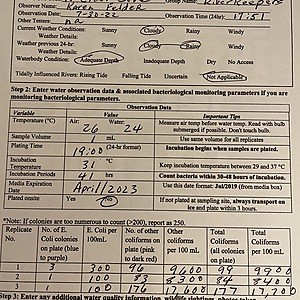 Group Name: Riverkeepers
Observer Name: Karen Feldon
Observation Date: 7-30-22 Observation Time (24hr): 17:51
Other Testers: na
Current Weather Condition: Sunny Cloudy Rainy Windy
Weather Details:
Weather previous 24-hr: Sunny Cloudy Rainy Windy
Weather Details:
Waterbody Condition: Adequate Depth Inadequate Depth Dry No Access
Tidally Influenced Rivers: Rising Tide Falling Tide Uncertain Not Applicable
Step 2: Enter water observation data & associated bacteriological monitoring observations if you are
monitoring bacteriological parameters.
Observation Data
Variable Value Important Tips
Temperature (°C) Air: 26 Water: 24 Measure air temp before water temp. Read with bulb submerged if possible. Don't touch bulb.
Sample Volume 1 mL Use same volume for all replicates
Plating Time 19:00 (24-hr format) Incubation begins when samples are plated.
Incubation Temperature 31 °C Keep incubation temperature between 29 and 37 °C
Incubation Periods 41 hrs Count bacteria within 30-48 hours of incubation.
Media Expiration Date April/2023 Use this date format: Jul/2019 (from media box)
Plated onsite Yes No If not plated at sampling site, always transport on ice and plate within 3 hours.
*Note: If colonies are too numerous to count (>200), report as 250.
Replicate No. No. of E. Coli colonies on plate (blue to purple) E. Coli per 100mL No. of other coliforms on plate (pink to dark red) Other coliforms per 100 mL Total Coliforms (all colonies on plate) Total Coliforms per 100 mL
1 3 300 96 9600 99 9900
2 1 100 83 8300 84 8400
3 1 100 176 177 17,700
Step 3: Enter any additional water quality information, wildlife sightings, photos taken